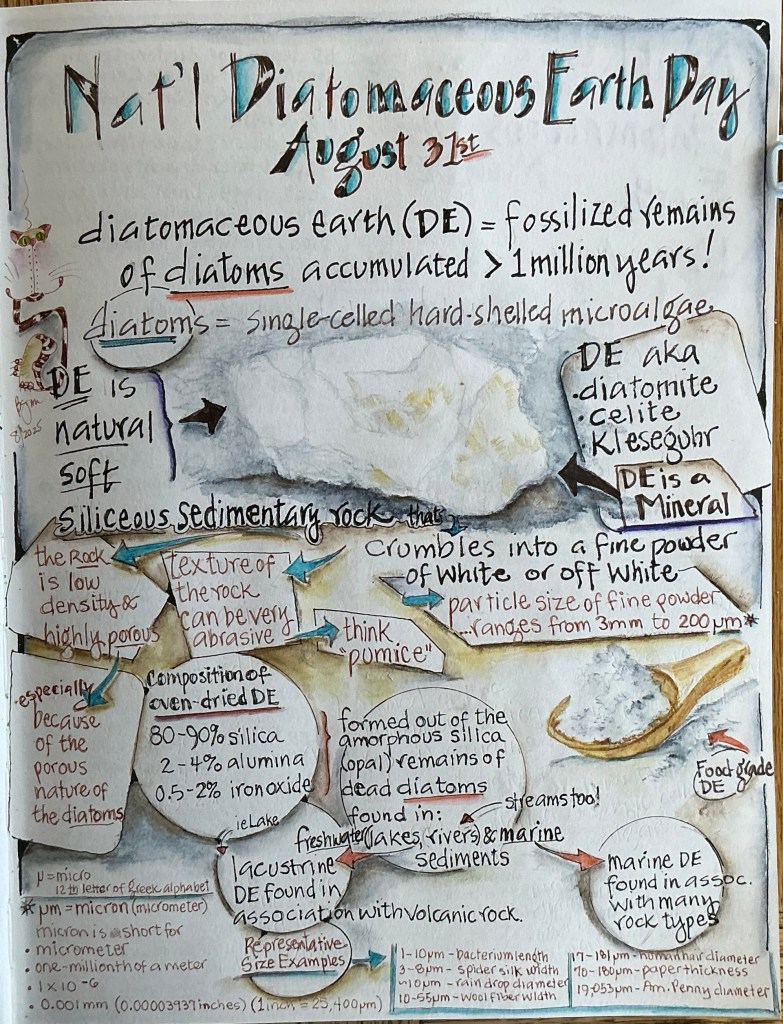 Nat'l Diatomaceous Earth Day
August 31st
diatomaceous earth (DE) = fossilized remains
of diatoms accumulated > 1 million years!
diatoms = single-celled hard-shelled microalgae
DE is
natural
soft
DE aka
·diatomite
·celite
·Kleseguhr
DE is a
Mineral
8/2025
siliceous sedimentary rock that
crumbles into a fine powder
of white or off white
the rock
is low
density &
highly porous
texture of
the rock
can be very
abrasive
think
"pumice"
particle size of fine powder
...ranges from 3mm to 200 µm*
·especially
because
of the
porous
nature of
the diatoms
Composition of
oven-dried DE
80-90% silica
2-4% alumina
0.5-2% iron oxide
formed out of the
amorphous silica
(opal) remains of
dead diatoms
found in:
streams too!
freshwater (lakes, rivers) & marine
sediments
Food grade
DE
ie Lake
lacustrine
DE found in
association with volcanic rock.
marine DE
found in assoc.
with many
rock types
µ = micro
12th letter of Greek alphabet
* µm = micron (micrometer)
micron is short for
· micrometer
· one-millionth of a meter
· 1 x 10⁻⁶
· 0.001 mm (0.00003937 inches) (1 inch = 25,400 µm)
Representative
Size Examples
1-10µm - bacterium length
3-8µm - spider silk width
~10µm - rain drop diameter
10-55µm - wool fiber width
17-181µm - human hair diameter
70-180µm - paper thickness
19,053µm - Am. Penny diameter